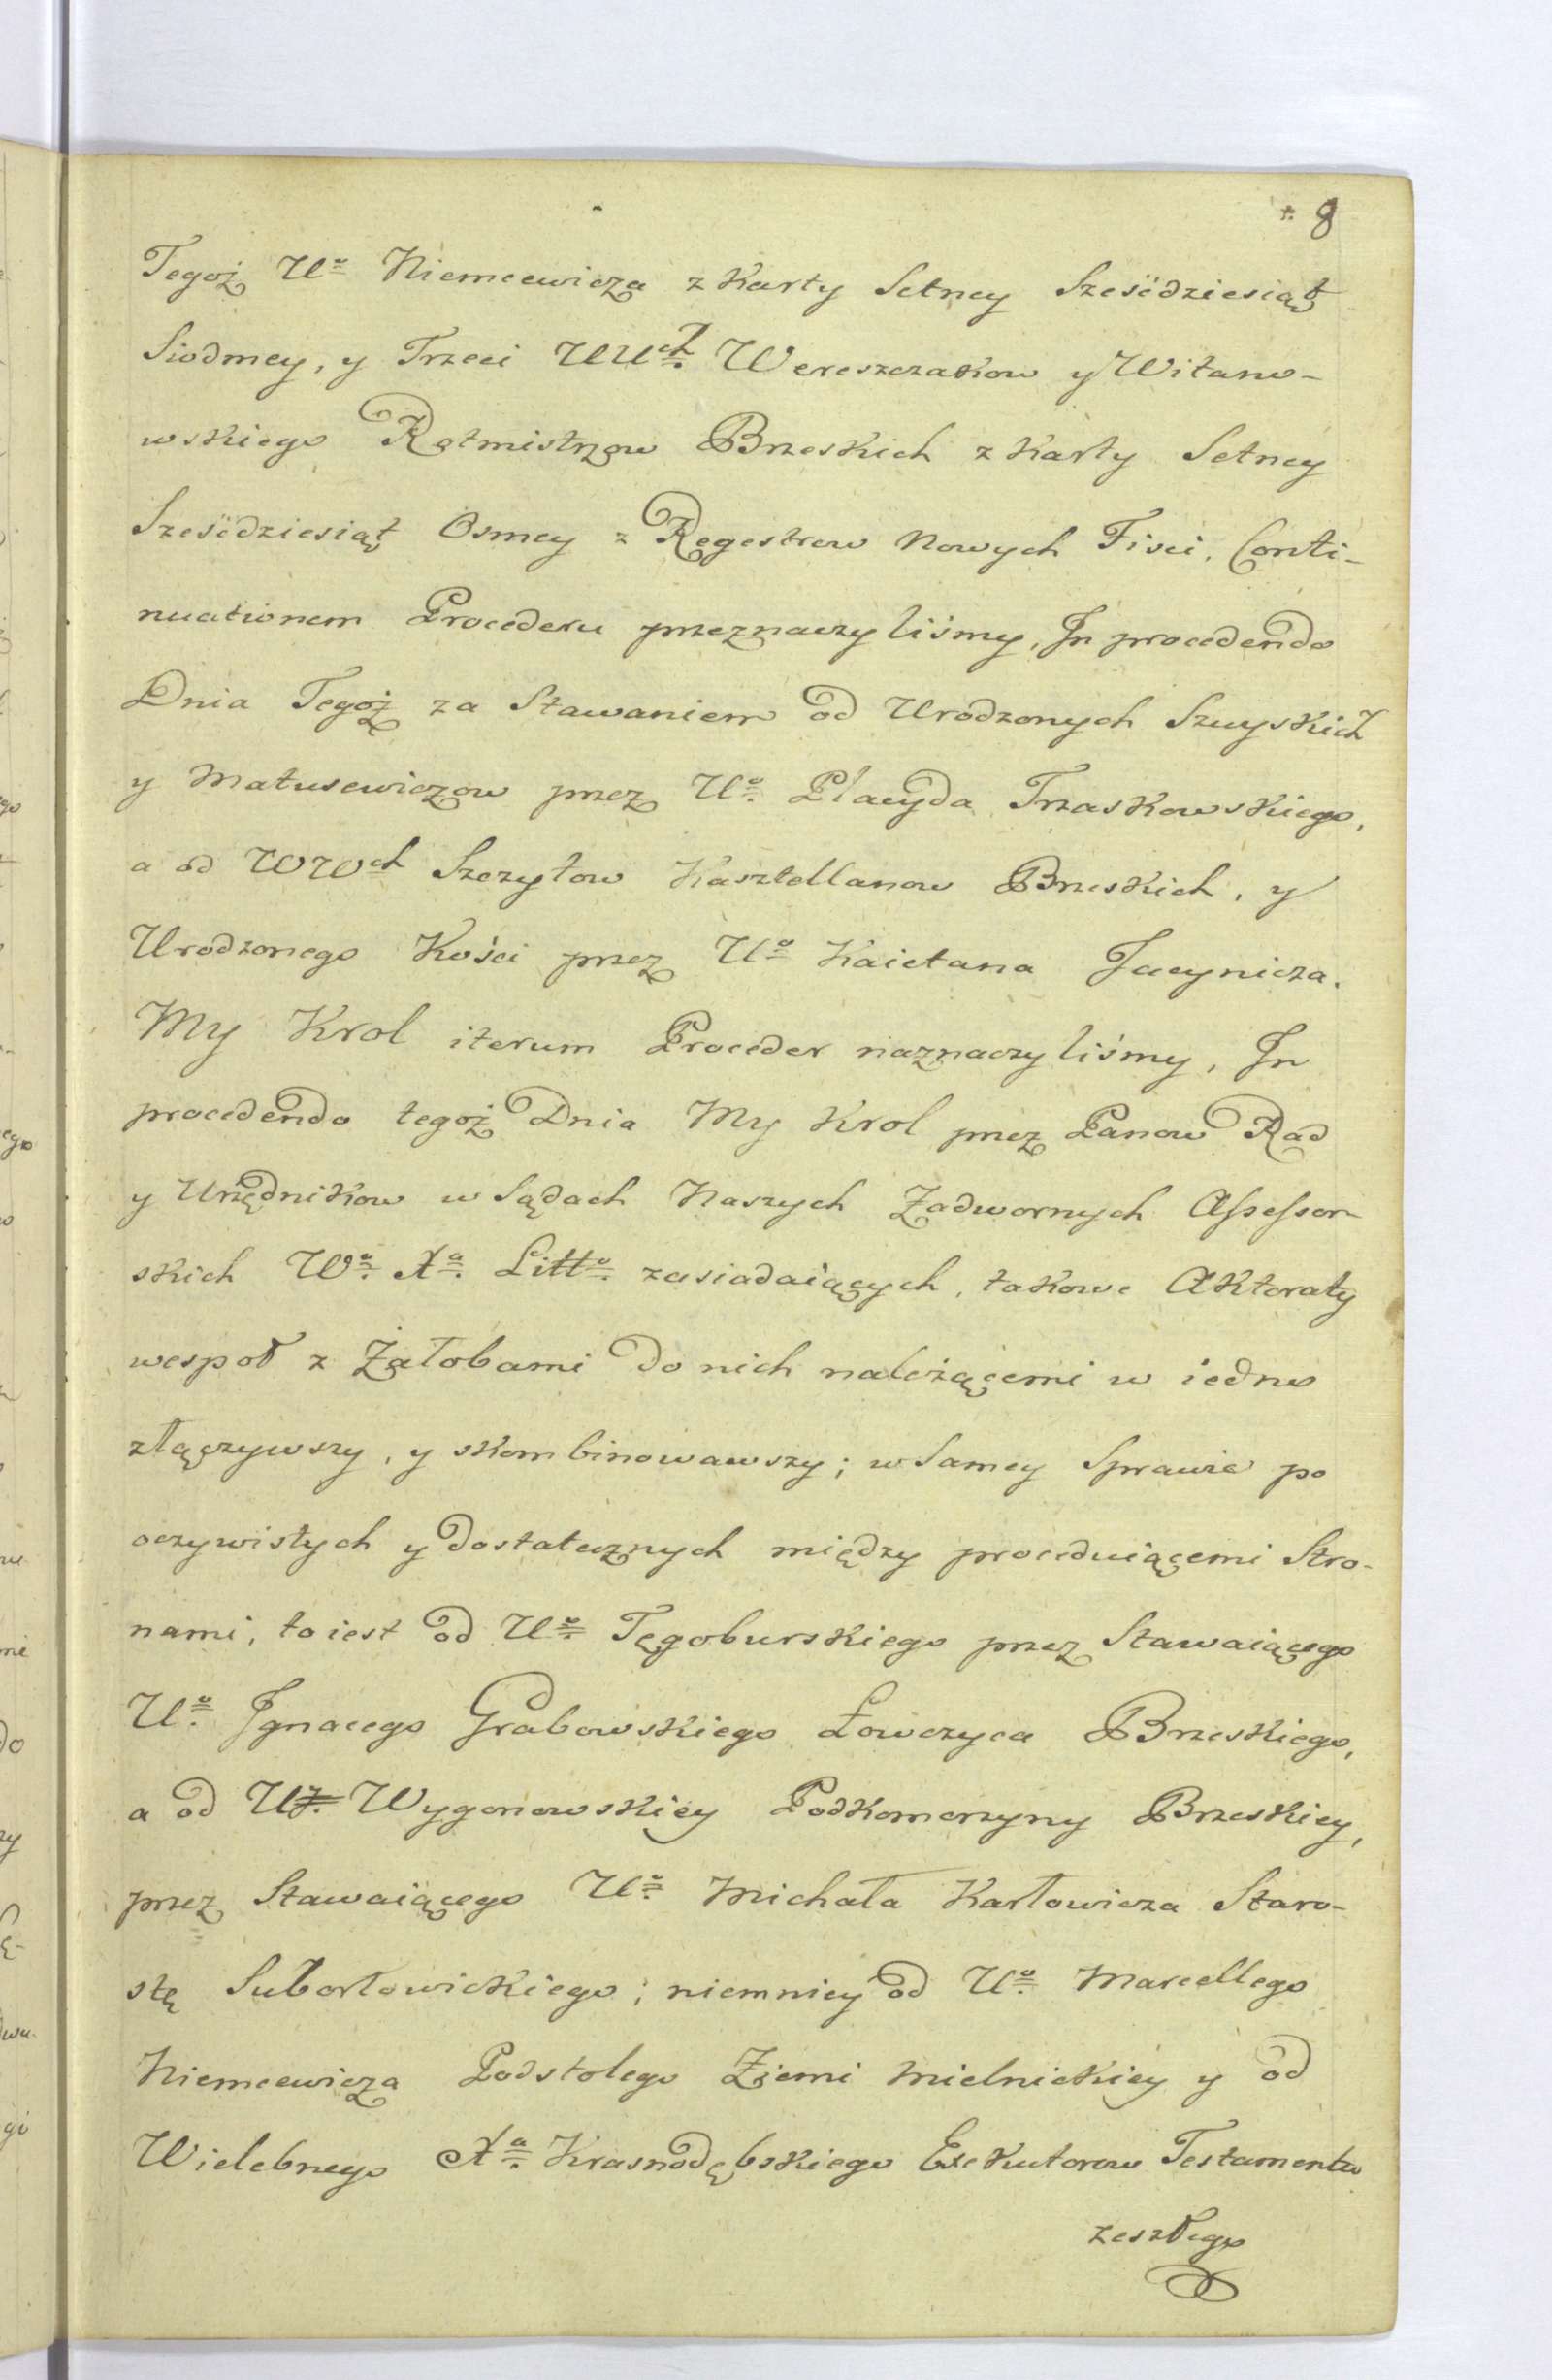 8
Tegoż Uº Niemcewicza z Karty Setney Sześćdziesiąt
Siodmey, y Trzeci UUch Wereszczakow y Witano-
wskiego Rotmistrzow Brzeskich z Karty Setney
Sześćdziesiąt Osmey z Regestrow Nowych Fisci, Conti-
nuationem Procederu przeznaczyliśmy, In procedendo
Dnia Tegoż za Stawaniem od Urodzonych Szuyskich
y Matusewiczow przez Uº Placyda Trzaskowskiego,
a od WWch Szczytow Kasztellanow Brzeskich, y
Urodzonego Kości przez Uº Kaietana Jacynicza.
My Krol iterum Proceder naznaczyliśmy, In
procedendo tegoż Dnia My Krol przez Panow Rad
y Urzędnikow w Sądach Naszych Zadwornych Assessor-
skich Wº Xª Littº zasiadaiących, takowe Aktoraty
wespoł z Żałobami do nich należącemi w iedno
złączywszy, y skombinowawszy; w Samey Sprawie po
oczywistych y dostatecznych między proceduiącemi Stro-
nami, to iest od Uº Tęgoburskiego przez Stawaiącego
Uº Ignacego Grabowskiego Łowczyca Brzeskiego,
a od Uż Wygonowskiey Podkomorzyny Brzeskiey,
przez Stawaiącego Uº Michała Karłowicza Staro-
stę Subortowickiego; niemniey od Uº Marcellego
Niemcewicza Podstolego Ziemi Mielnickiey y od
Wielebnego Xª Krasnodębskiego Exekutorow Testamentu
zeszłego